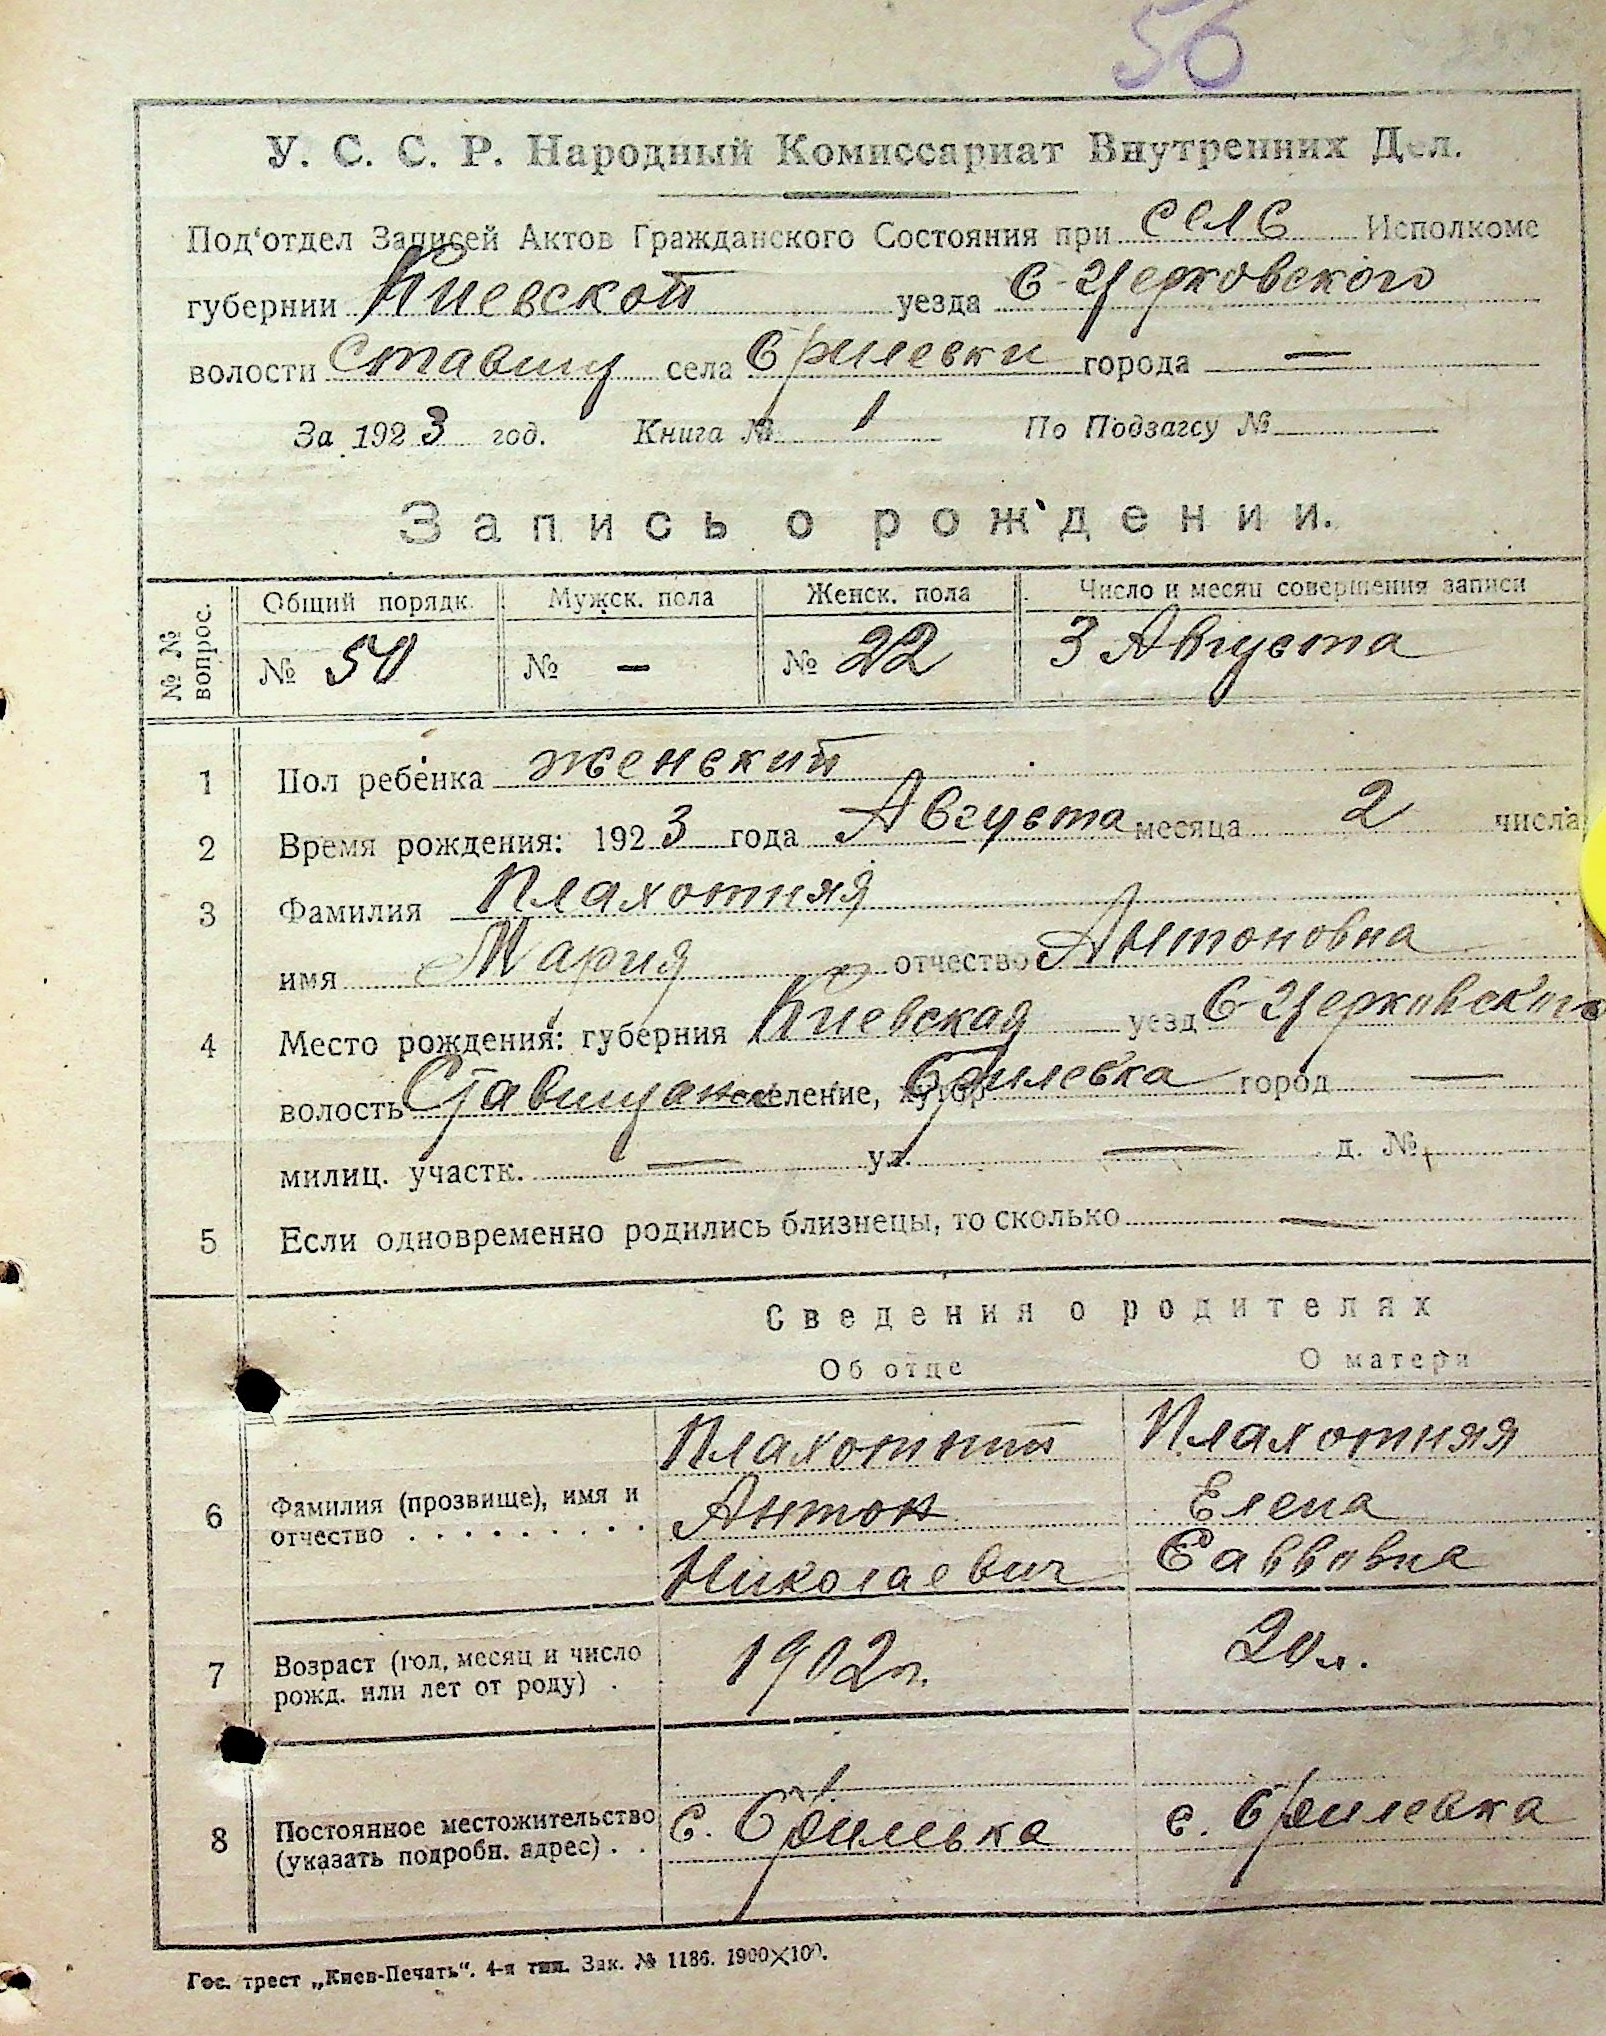 56
У. С. С. Р. Народный Комиссариат Внутренних Дел.
Под'отдел Записей Актов Гражданского Состояния при сель Исполкоме
губернии Киевской уезда Б-Церковского
волости Ставищ села Брилевки города —
За 1923 год. Книга № 1 По Подзагсу №
Запись о рождении.
№ № вопрос. Общий порядк. Мужск. пола Женск. пола Число и месяц совершения записи
№ 50 № — № 22 3 Августа
1 Пол ребенка женский
2 Время рождения: 1923 года Августа месяца 2 числа
3 Фамилия Плахотняя
имя Мария отчество Антоновна
4 Место рождения: губерния Киевская уезд Б-Церковского
волость Ставищанск селение, хутор Брилевка город —
милиц. участк. — ул. — д. №
5 Если одновременно родились близнецы, то сколько —
Сведения о родителях
Об отце О матери
Плахотний Плахотняя
6 Фамилия (прозвище), имя и Антон Елена
отчество Николаевич Савовна
7 Возраст (год, месяц и число 1902 г. 20 л.
рожд. или лет от роду)
8 Постоянное местожительство с. Брилевка с. Брилевка
(указать подробн. адрес)
Гос. трест „Киев-Печать“. 4-я тип. Зак. № 1186. 1900×100.